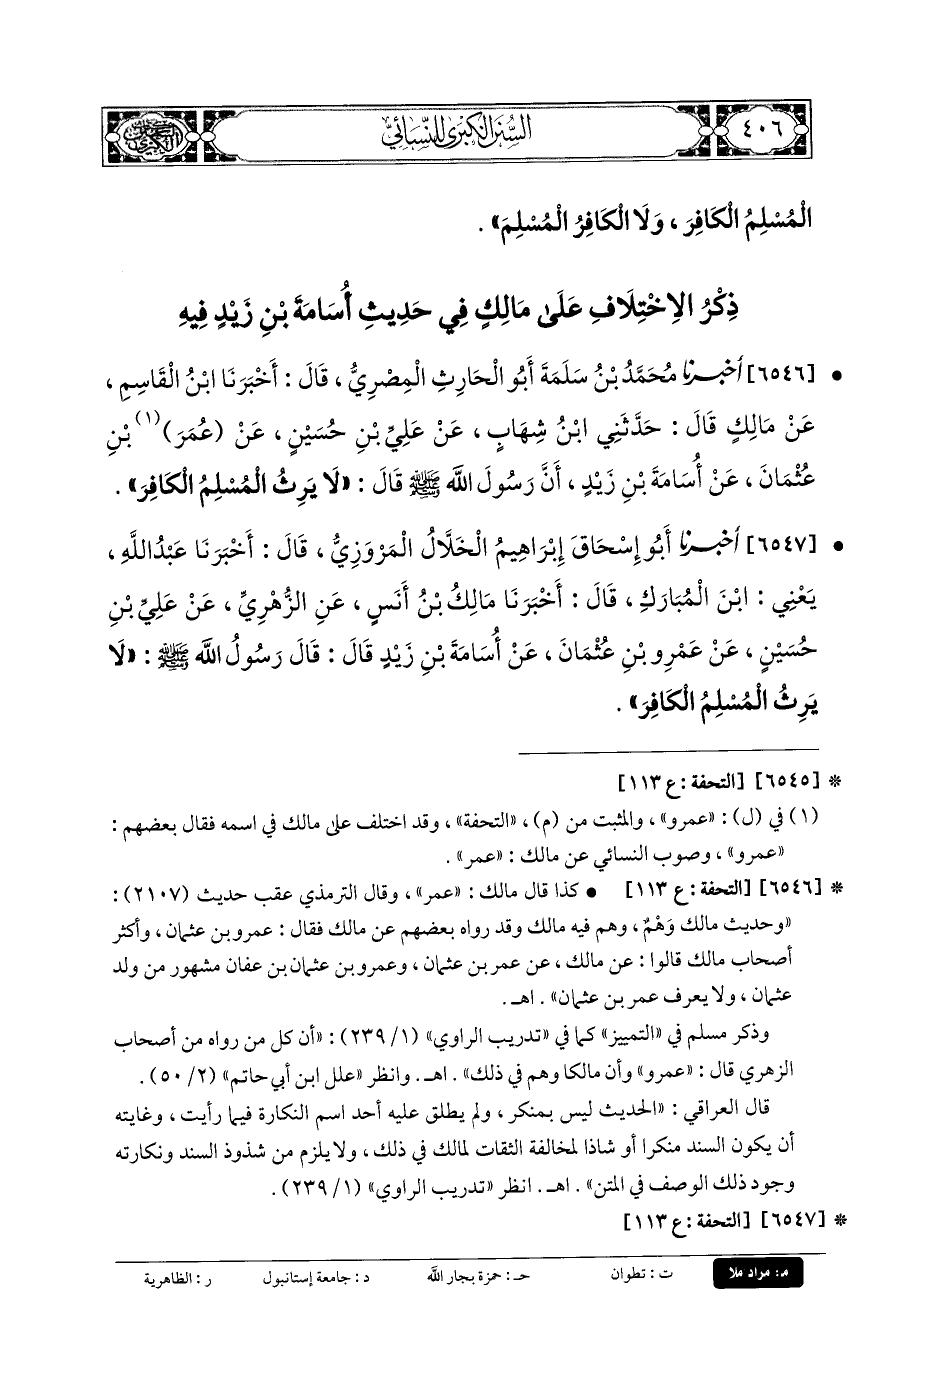 السُّنَنُ الْكِبْرَىٰ لِلنِّسَائِيِّ
٤٠٦
الْمُسْلِمُ الْكَافِرَ ، وَلَا الْكَافِرُ الْمُسْلِمَ» .
ذِكْرُ الِاخْتِلَافِ عَلَىٰ مَالِكٍ فِي حَدِيثِ أُسَامَةَ بْنِ زَيْدٍ فِيهِ
• [٦٥٤٦] أخبرنا مُحَمَّدُ بْنُ سَلَمَةَ أَبُو الْحَارِثِ الْمِصْرِيُّ ، قَالَ : أَخْبَرَنَا ابْنُ الْقَاسِمِ ،
عَنْ مَالِكٍ قَالَ : حَدَّثَنِي ابْنُ شِهَابٍ ، عَنْ عَلِيِّ بْنِ حُسَيْنٍ ، عَنْ (عُمَرَ)(١) بْنِ
عُثْمَانَ ، عَنْ أُسَامَةَ بْنِ زَيْدٍ ، أَنَّ رَسُولَ اللَّه ﷺ قَالَ : «لَا يَرِثُ الْمُسْلِمُ الْكَافِرَ» .
• [٦٥٤٧] أخبرنا أَبُو إِسْحَاقَ إِبْرَاهِيمُ الْخَلَّالُ الْمَرْوَزِيُّ ، قَالَ : أَخْبَرَنَا عَبْدُاللَّهِ ،
يَعْنِي : ابْنَ الْمُبَارَكِ ، قَالَ : أَخْبَرَنَا مَالِكُ بْنُ أَنَسٍ ، عَنِ الزُّهْرِيِّ ، عَنْ عَلِيِّ بْنِ
حُسَيْنٍ ، عَنْ عَمْرِو بْنِ عُثْمَانَ ، عَنْ أُسَامَةَ بْنِ زَيْدٍ قَالَ : قَالَ رَسُولُ اللَّه ﷺ : «لَا
يَرِثُ الْمُسْلِمُ الْكَافِرَ» .
* [٦٥٤٥] [التحفة : ع ١١٣]
(١) في (ل) : «عمرو» ، والمثبت من (م) ، «التحفة» ، وقد اختلف على مالك في اسمه فقال بعضهم :
«عمرو» ، وصوب النسائي عن مالك : «عمر» .
* [٦٥٤٦] [التحفة : ع ١١٣] • كذا قال مالك : «عمر» ، وقال الترمذي عقب حديث (٢١٠٧) :
«وحديث مالك وَهْمٌ ، وهم فيه مالك وقد رواه بعضهم عن مالك فقال : عمرو بن عثمان ، وأكثر
أصحاب مالك قالوا : عن مالك ، عن عمر بن عثمان ، وعمرو بن عثمان بن عفان مشهور من ولد
عثمان ، ولا يعرف عمر بن عثمان» . اهـ .
وذكر مسلم في «التمييز» كما في «تدريب الراوي» (١/ ٢٣٩) : «أن كل من رواه من أصحاب
الزهري قال : «عمرو» وأن مالكا وهم في ذلك» . اهـ. وانظر «علل ابن أبي حاتم» (٢/ ٥٠) .
قال العراقي : «الحديث ليس بمنكر ، ولم يطلق عليه أحد اسم النكارة فيما رأيت ، وغايته
أن يكون السند منكرا أو شاذا لمخالفة الثقات لمالك في ذلك ، ولا يلزم من شذوذ السند ونكارته
وجود ذلك الوصف في المتن» . اهـ. انظر «تدريب الراوي» (١/ ٢٣٩) .
* [٦٥٤٧] [التحفة : ع ١١٣]
م: مراد ملا ت : تطوان حـ : حمزة بجار اللَّه د : جامعة إستانبول ر : الظاهرية